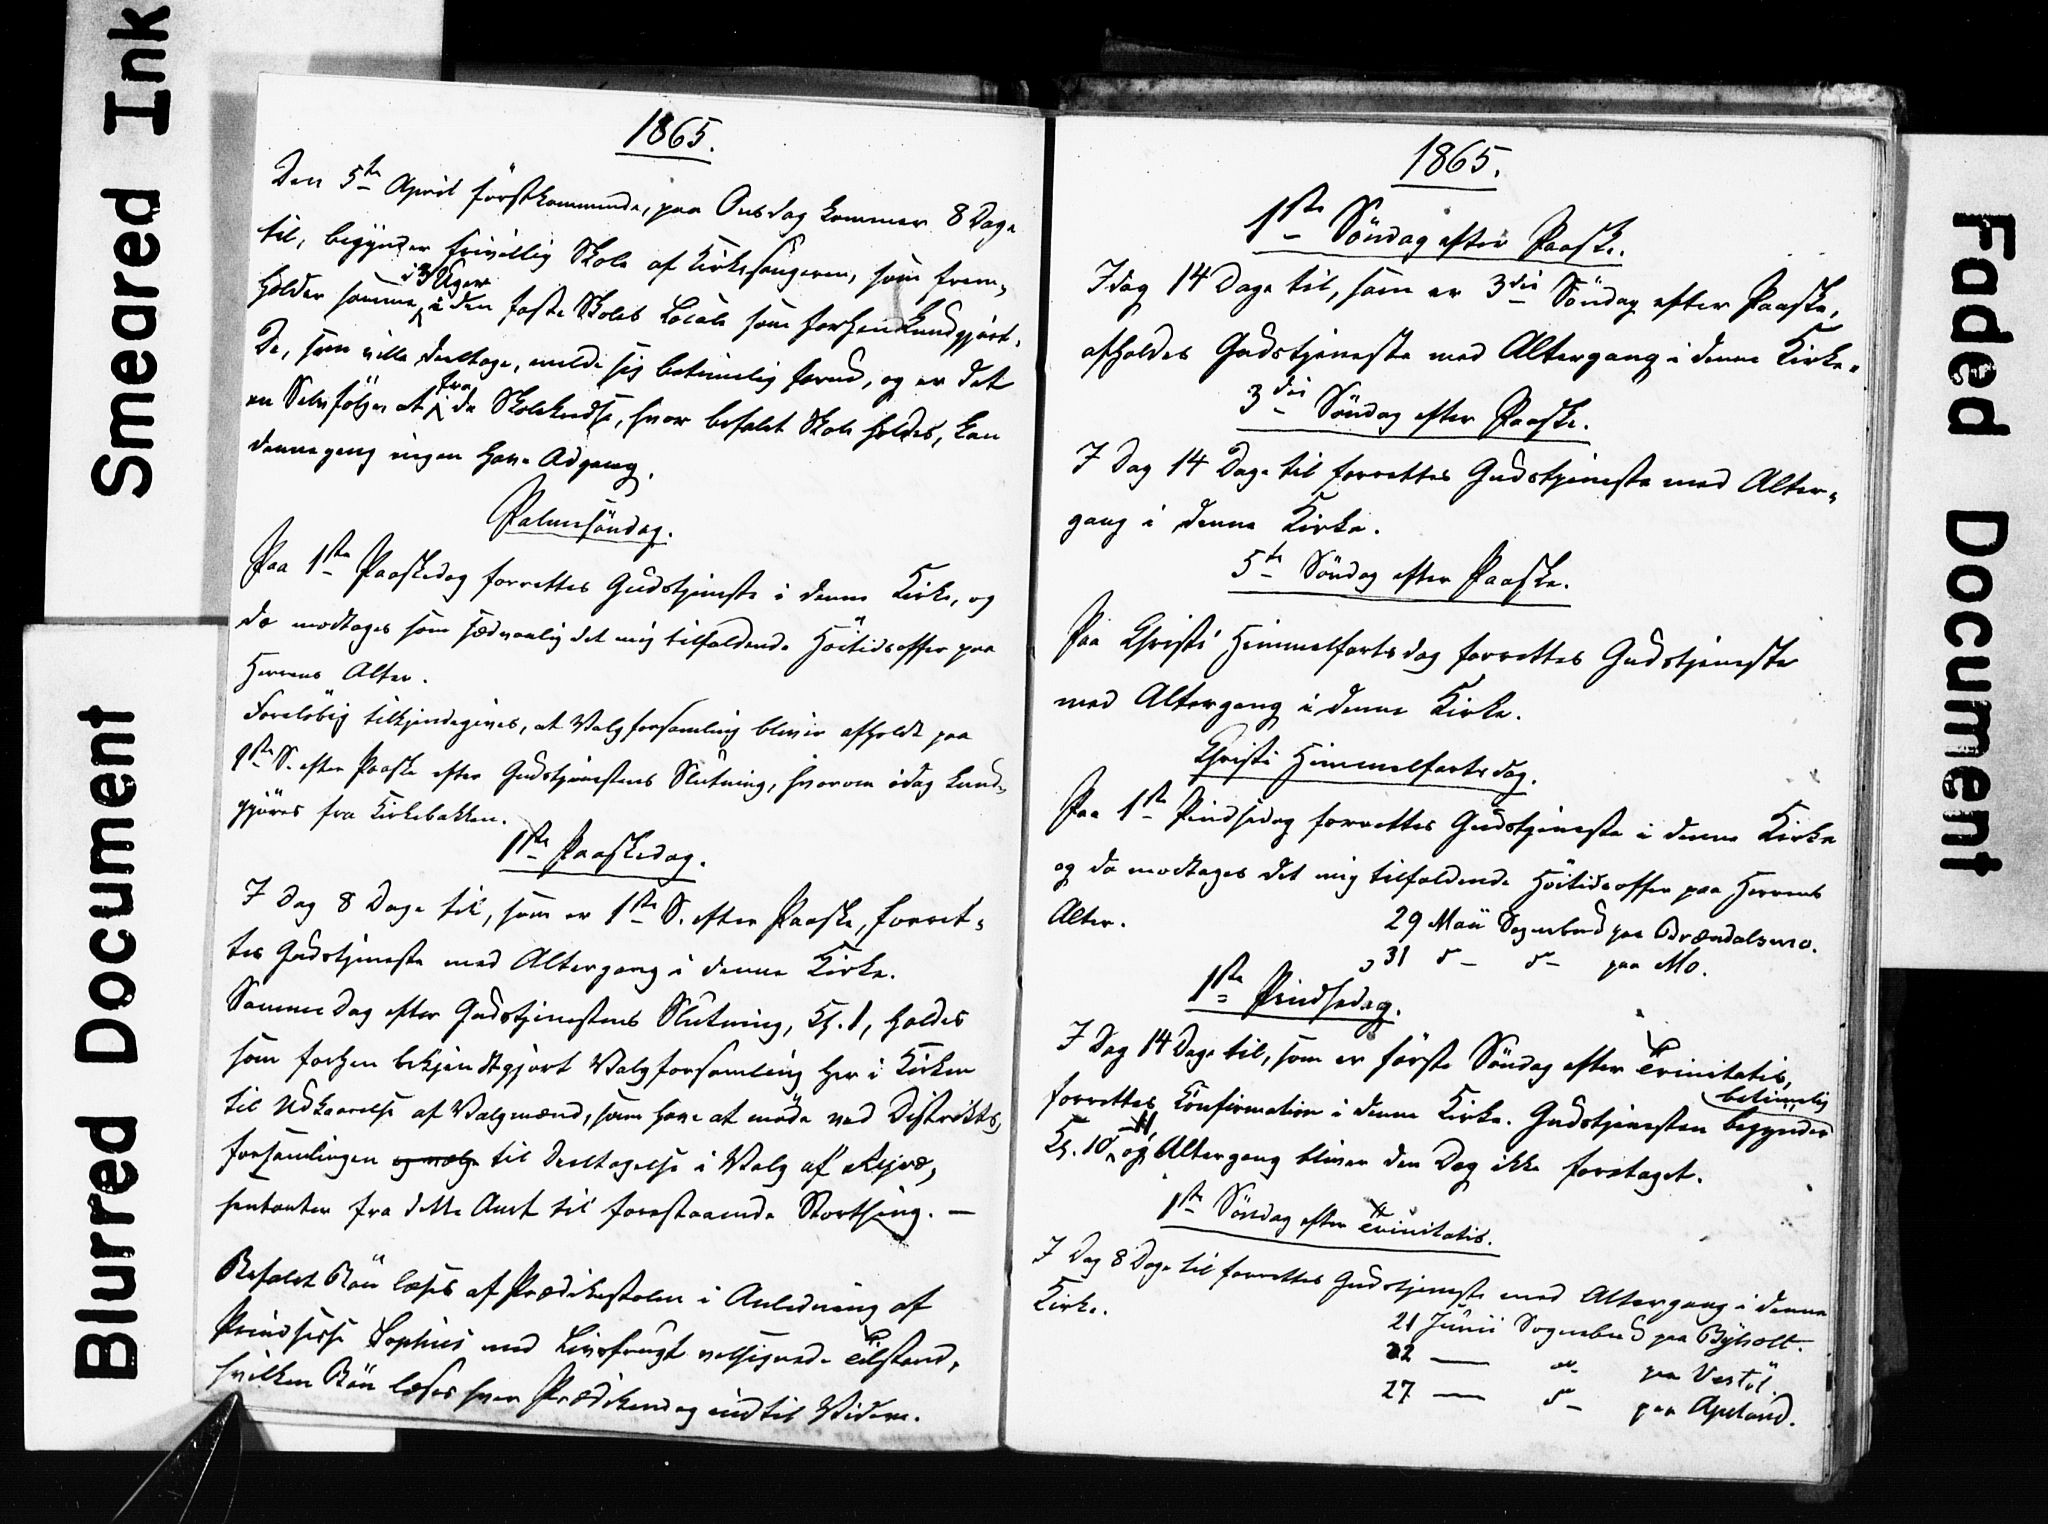 1865.
Den 5te April förstkommende, paa Onsdag kommer 8 Dage
til, begynder frivillig Skole af Kirkesangeren, som frem-
holder samme i 3 Uger i den faste Skoles Locale som forhen kundgjort.
De, som ville deeltage, melde sig betimelig forud, og er det
en Selvfölge at fra de Skolekredse, hvor befalet Skole holdes, kan
dennegang ingen have Adgang.
Palmesöndag.
Paa 1ste Paaskedag forrettes Gudstjeneste i denne Kirke, og
da modtages som sædvanlig det mig tilfaldende Höitidsoffer paa
Herrens Alter.
Forelöbig tilkjendegives, at Valgforsamling bliver afholdt paa
1ste S. efter Paaske efter Gudstjenestens Slutning, hvorom idag kund-
gjöres fra Kirkebakken.
1ste Paaskedag.
I Dag 8 Dage til, som er 1ste S. efter Paaske, forret-
tes Gudstjeneste med Altergang i denne Kirke.
Samme Dag efter Gudstjenestens Slutning, Kl. 1, holdes
som forhen bekjendtgjort Valgforsamling her i Kirken
til Udkaarelse af Valgmænd, som have at möde ved Distrikts-
forsamlingen og vælge til Deeltagelse i Valg af Repræ-
sentanter fra dette Amt til forestaaende Storthing. —
Befalet Bön læses af Prædikestolen i Anledning af
Prindsesse Sophies med Livsfrugt velsignede Tilstand,
hvilken Bön læses hver Prædikendag indtil Videre.
1865.
1ste Söndag efter Paaske.
I dag 14 Dage til, som er 3die Söndag efter Paaske,
afholdes Gudstjeneste med Altergang i denne Kirke.
3die Söndag efter Paaske.
I Dag 14 Dage til forrettes Gudstjeneste med Alter-
gang i denne Kirke.
5te Söndag efter Paaske.
Paa Christi Himmelfartsdag forrettes Gudstjeneste
med Altergang i denne Kirke.
Christi Himmelfartsdag.
Paa 1ste Pindsedag forrettes Gudstjeneste i denne Kirke
og da modtages det mig tilfaldende Höitidsoffer paa Herrens
Alter.
29 Maii Sognebud paa Brændalsmo.
31 D— D— paa Mo.
1ste Pindsedag.
I Dag 14 Dage til, som er förste Söndag efter Trinitatis,
forrettes Confirmation i denne Kirke. Gudstjenesten begynder betimelig
Kl. 10, og Altergang bliver den Dag ikke foretaget.
1ste Söndag efter Trinitatis.
I Dag 8 Dage til forrettes Gudstjeneste med Altergang i denne
Kirke.
21 Junii Sognebud paa Byholt.
22 — D— paa Vestöl.
27 — D— paa Apeland.
Smeared Ink
Blurred Document
Faded Document